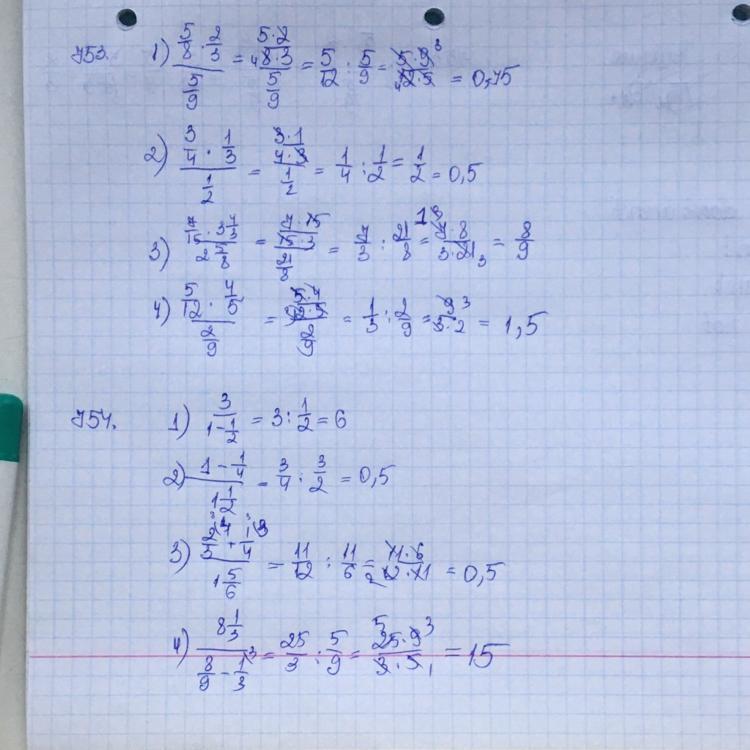 753. 1) (5/8 · 2/3)/(5/9) = (5·2/8·3)/(5/9) = 5/12 : 5/9 = 5·9/12·5 = 0,75
2) (3/4 · 1/3)/(1/2) = (3·1/4·3)/(1/2) = 1/4 : 1/2 = 1/2 = 0,5
3) = (7·15/15·3)/(21/8) = 7/3 : 21/8 = 7·8/3·21 = 8/9
4) (5/12 · 4/5)/(2/9) = (5·4/12·5)/(2/9) = 1/3 : 2/9 = 9/3·2 = 1,5
754. 1) 3/(1-1/2) = 3 : 1/2 = 6
2) (1-1/4)/(1 1/2) = 3/4 : 3/2 = 0,5
3) (2/3 + 1/4)/(1 5/6) = 11/12 : 11/6 = 11·6/12·11 = 0,5
4) (8 1/3)/(8/9 - 1/3) = 25/3 : 5/9 = 25·9/3·5 = 15